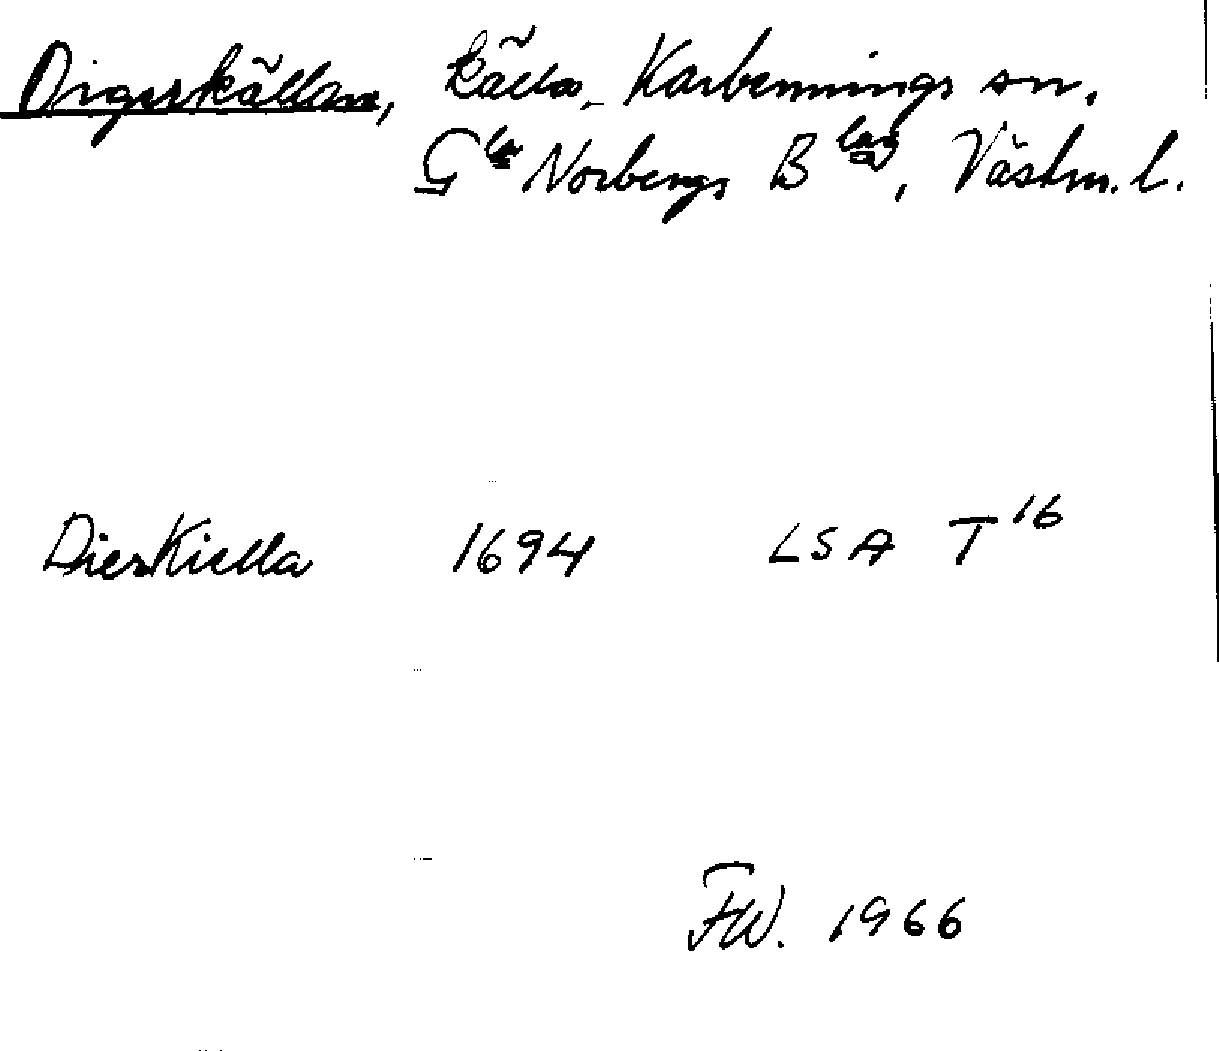 Digerskällan, källa, Karbennings sn.
Gla Norbergs Blag, Västm. l.
Dierkiella 1694 LSA T16
FW. 1966